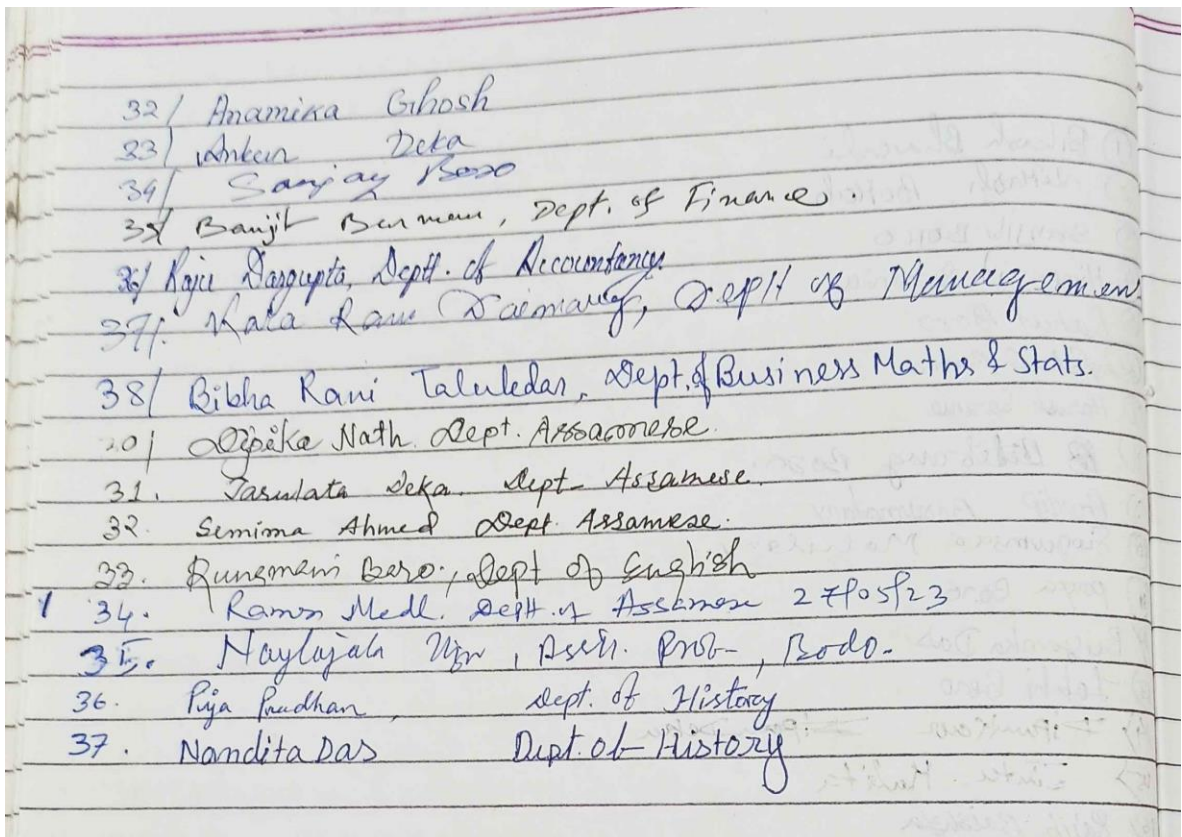 32/ Anamika Ghosh
33/ Ankur Deka
34/ Sanjay Boro
35/ Banjit Barman, Dept. of Finance.
36/ Raju Dasgupta, Deptt. of Accountancy.
37/. Kala Ram Daimary, Deptt of Managemen
38/ Bibha Rani Talukdar, Dept. of Business Maths & Stats.
Dipika Nath. Dept. Assamese.
31. Deka. Dept- Assamese.
32. Semima Ahmed Dept. Assamese.
33. Rungmani Boro., Dept of English
34. Medhi. Deptt. of Assamese 27/05/23
35. , Asstt. Prof-, Bodo.
36. Priya Pradhan, Dept. of History
37. Nandita Das Dept. of History